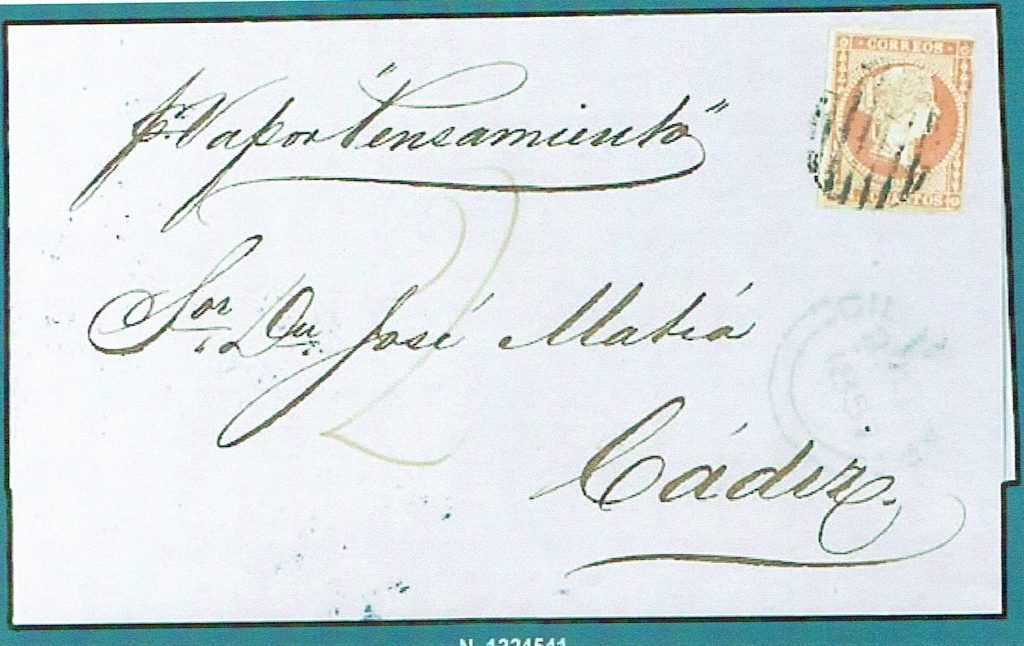 CORREOS
pr. Vapor "Pensamiento"
2
Sor. Dn. José Matiá
Cádiz.
N. 1224541